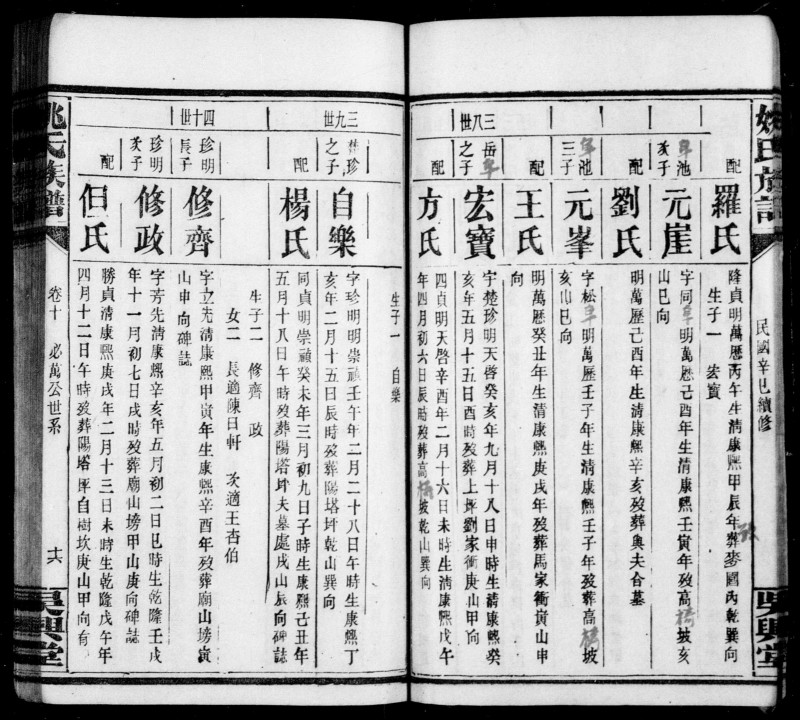 民國辛巳續修
吳興堂
配
羅氏
隆貞明萬曆丙午生清康熙甲辰年葬麥國內乾巽向
生子一 宏寶
阜池
次子
元崖
字同阜明萬曆己酉年生清康熙壬寅年歿葬高椅坡亥
山巳向
配
劉氏
明萬歷己酉年生清康熙辛亥歿葬與夫合墓
阜池
三子
元峯
字松阜明萬歷壬子年生清康熙壬子年歿葬高椅坡
亥山巳向
配
王氏
明萬歷癸丑年生清康熙庚戌年歿葬馬家衝寅山申
向
三八世
岳阜
之子
宏寶
字楚珍明天啓癸亥年九月十八日申時生清康熙癸
亥年五月十五日酉時歿葬上坪劉家衝庚山甲向
配
方氏
四貞明天啓辛酉年二月十六日未時生清康熙戊午
年四月初六日辰時歿葬高椅坡乾山巽向
生子一 自樂
三九世
楚珍
之子
自樂
字珍明明崇禎壬午年二月二十八日午時生康熙丁
亥年二月十五日辰時歿葬陽塔坪乾山巽向
配
楊氏
同貞明崇禎癸未年三月初九日子時生康熙己丑年
五月十八日午時歿葬陽塔坪夫墓處戌山辰向碑誌
生子二 修齊 政
女二 長適陳日軒 次適王吉伯
四十世
珍明
長子
修齊
字立先清康熙甲寅年生康熙辛酉年歿葬廟山塝寅
山申向碑誌
珍明
次子
修政
字芳先清康熙辛亥年五月初二日巳時生乾隆壬戌
年十一月初七日戌時歿葬廟山塝甲山庚向碑誌
配
但氏
勝貞清康熙庚戌年二月十三日未時生乾隆戊午年
四月十二日午時歿葬陽塔坪自樹坎庚山甲向有
姚氏族譜
卷十 必萬公世系
十六
吳興堂